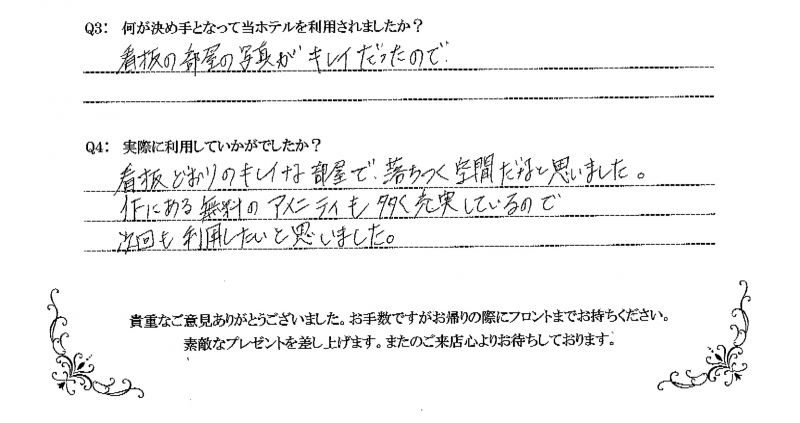 Q3: 何が決め手となって当ホテルを利用されましたか？
看板の部屋の写真がキレイだったので
Q4: 実際に利用していかがでしたか？
看板どおりのキレイな部屋で、落ちつく空間だなと思いました。
にある無料のアメニティも多く充実しているので
次回も利用したいと思いました。
貴重なご意見ありがとうございました。お手数ですがお帰りの際にフロントまでお持ちください。
素敵なプレゼントを差し上げます。またのご来店心よりお待ちしております。